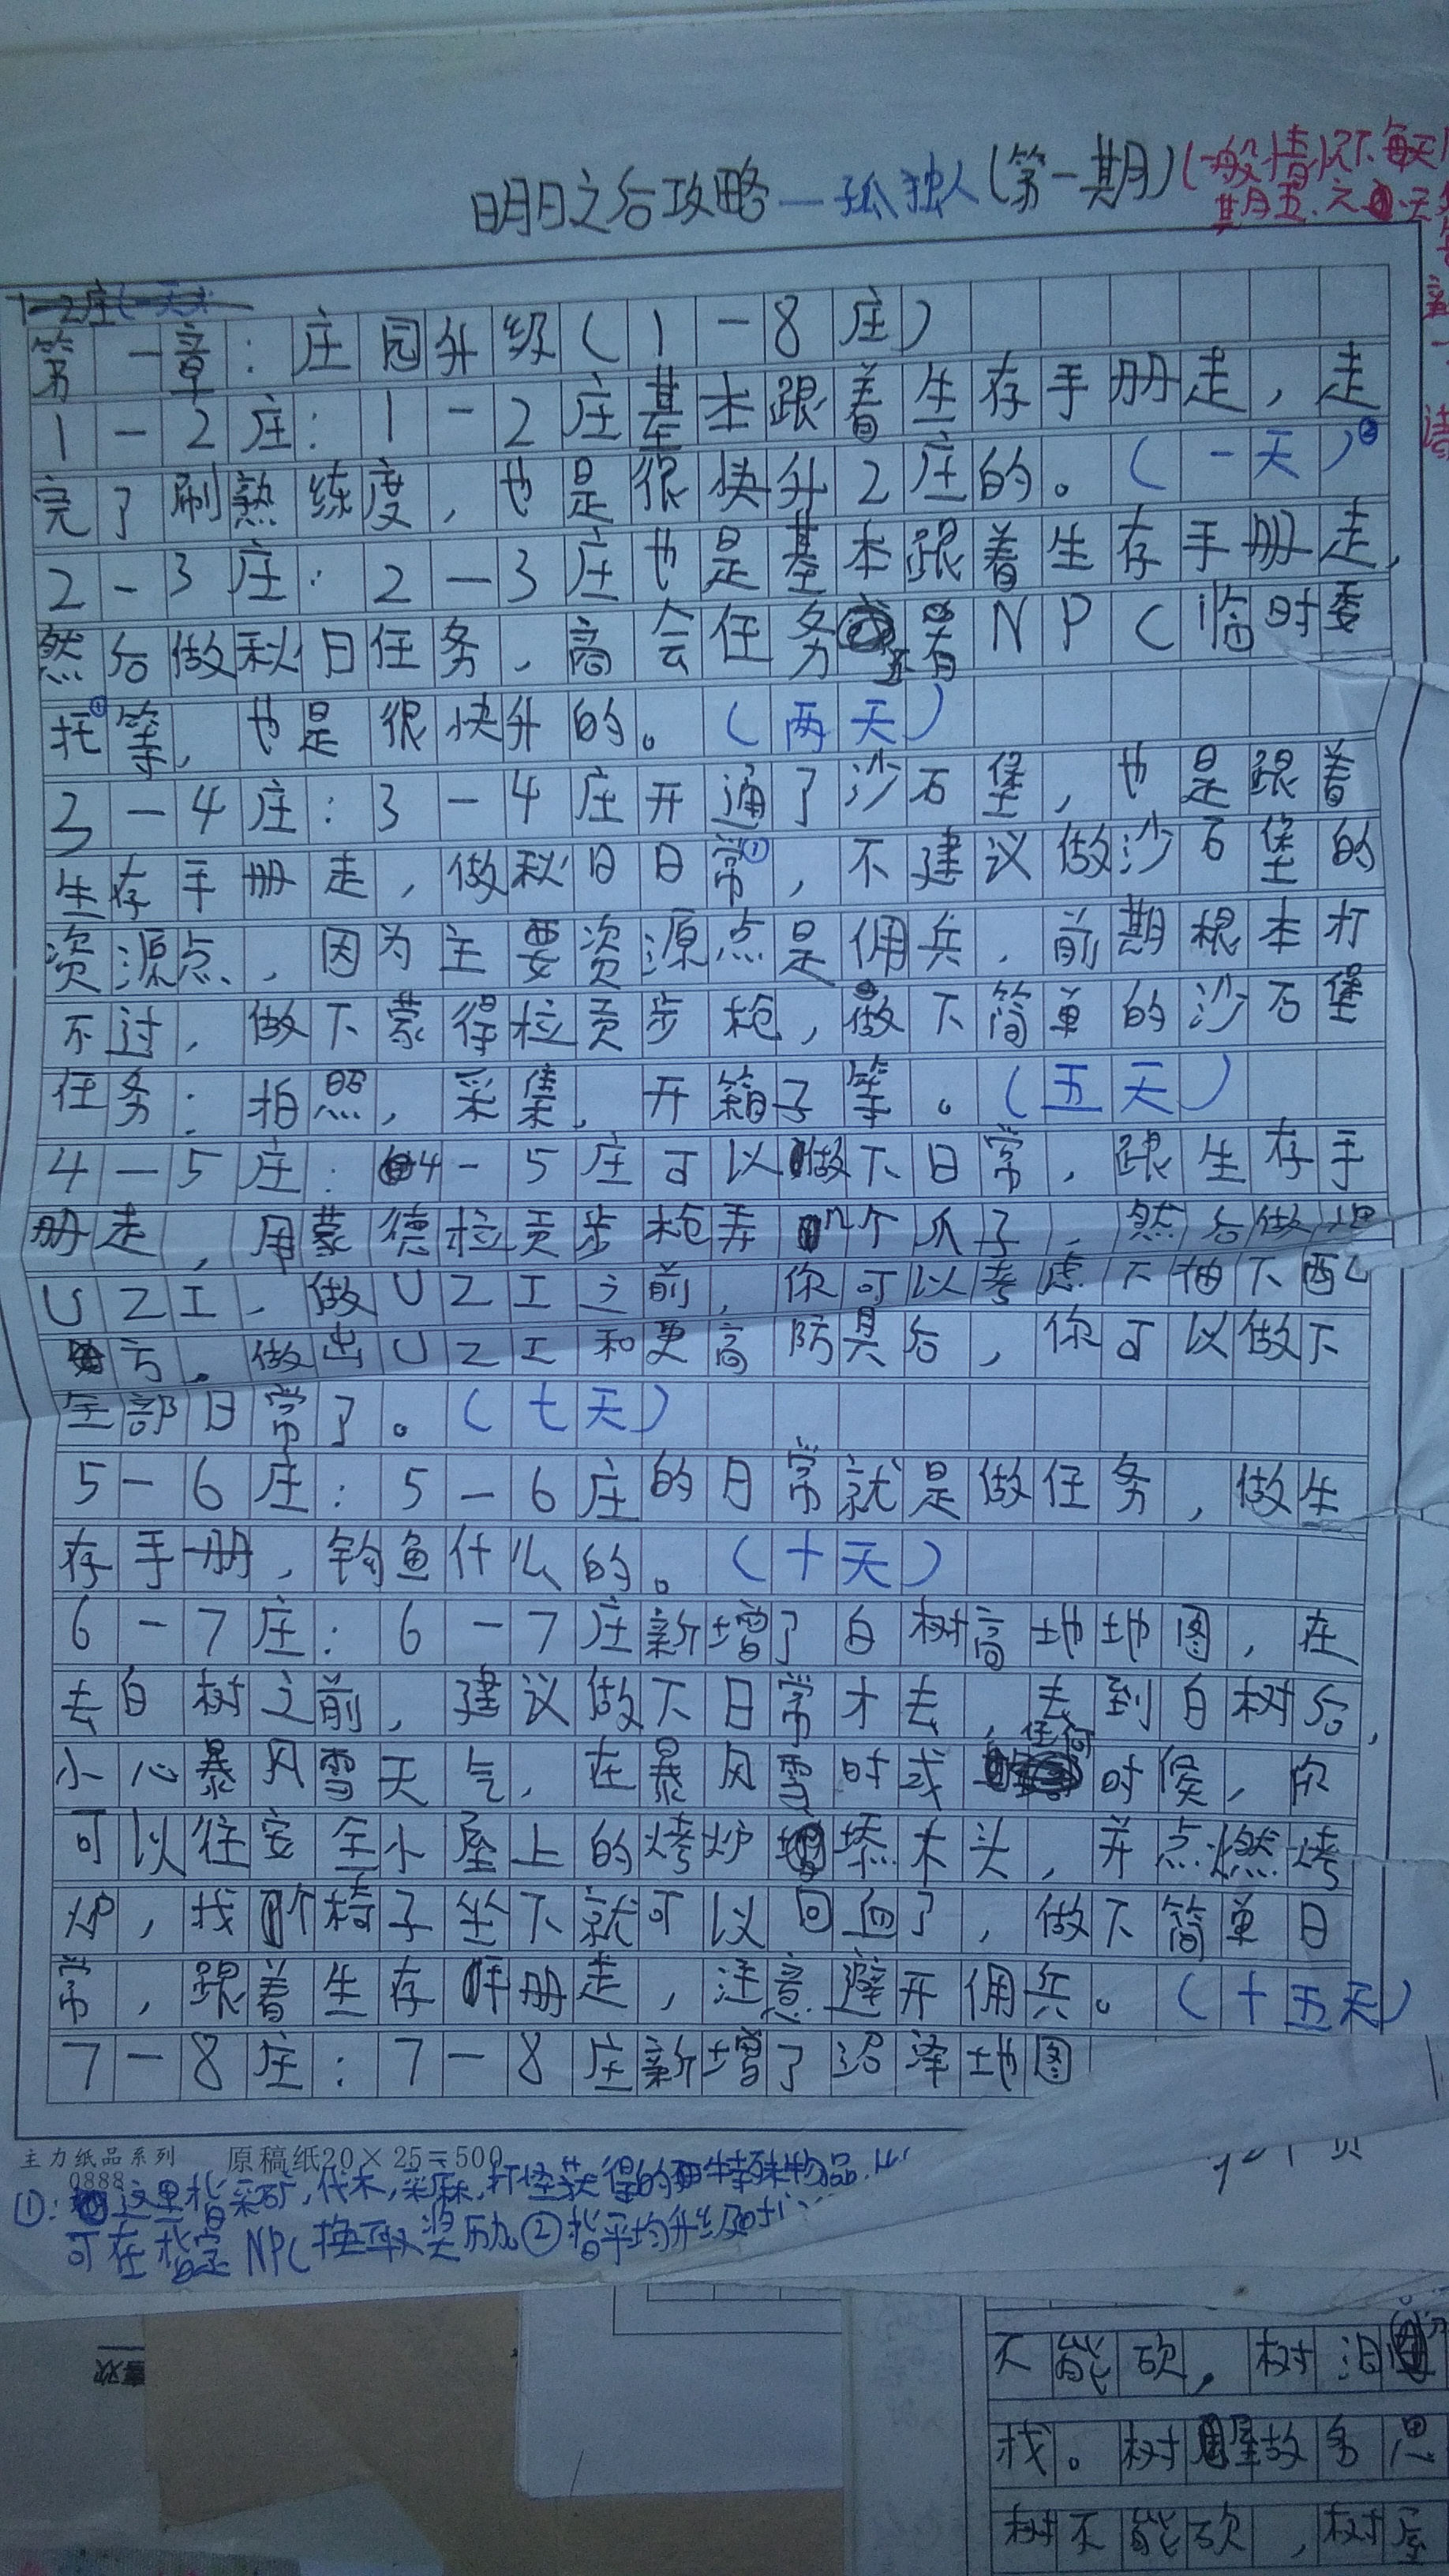 明日之后攻略—孤独人(第一期)(一般情况下每天
期五、六、天
1-2庄(一天)
第一章:庄园升级(1-8庄)
1-2庄:1-2庄基本跟着生存手册走,走
完了刷熟练度,也是很快升2庄的。(一天)②
2-3庄:2-3庄也是基本跟着生存手册走,
然后做秋日任务,商会任务 着NPC(临时委
托①等,也是很快升的。(两天)
3-4庄:3-4庄开通了沙石堡,也是跟着
生存手册走,做秋日日常①,不建议做沙石堡的
资源点,因为主要资源点是佣兵,前期根本打
不过,做下蒙得拉贡步枪,做下简单的沙石堡
任务:拍照,采集,开箱子等。(五天)
4-5庄:4-5庄可以做下日常,跟生存手
册走,用蒙德拉贡步枪弄几个爪子,然后做把
UZI,做UZI之前,你可以考虑下抽下配
方。做出UZI和更高防具后,你可以做下
全部日常了。(七天)
5-6庄:5-6庄的日常就是做任务,做生
存手册,钓鱼什么的。(十天)
6-7庄:6-7庄新增了白树高地地图,在
去白树之前,建议做下日常才去,去到白树后,
小心暴风雪天气,在暴风雪时或任何时候,你
可以往安全小屋上的烤炉添木头,并点燃烤
炉,找个椅子坐下就可以回血了,做下简单日
常,跟着生存手册走,注意避开佣兵。(十五天)
7-8庄:7-8庄新增了沼泽地图
主力纸品系列 原稿纸20×25=500
0888
①:这里指采矿,伐木,采麻,打怪获得的特殊物品,
可在指定NPC换取奖励②指平均升级时
页
喜欢
不能砍,树
找。树屋故多思
树不能砍,树屋